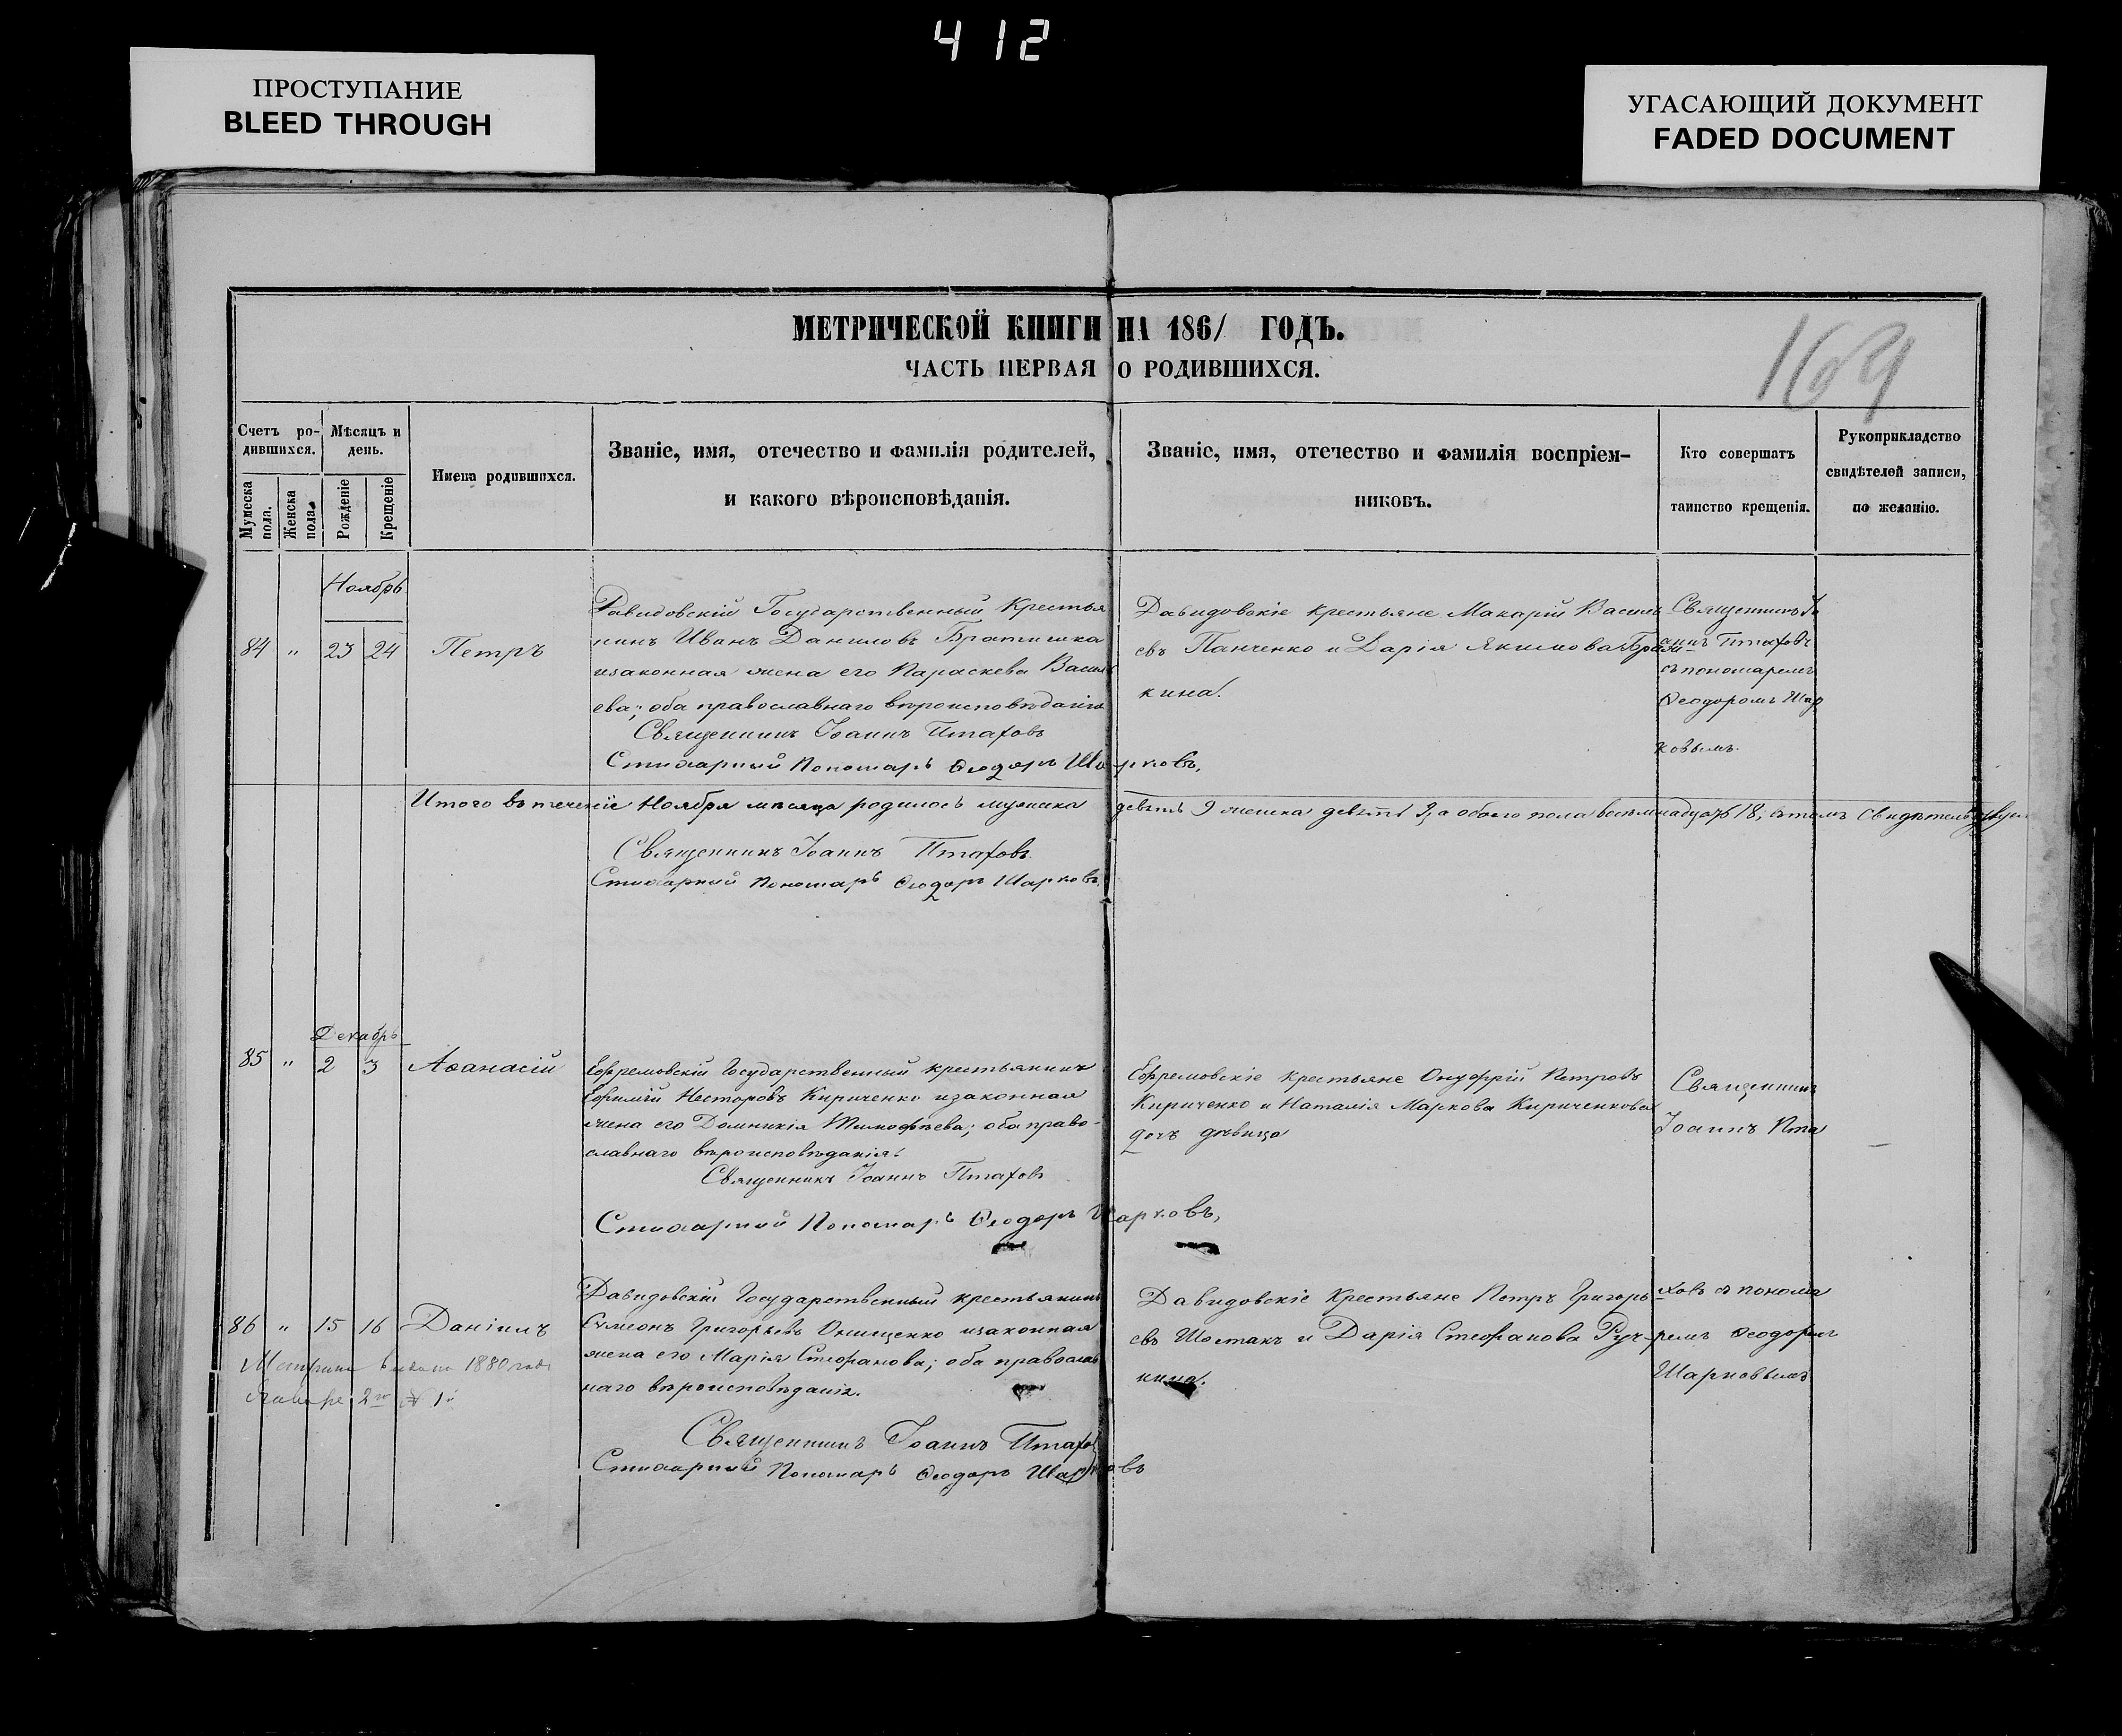 412
ПРОСТУПАНИЕ
BLEED THROUGH
УГАСАЮЩИЙ ДОКУМЕНТ
FADED DOCUMENT
МЕТРИЧЕСКОЙ КНИГИ НА 1861 ГОДЪ.
169
ЧАСТЬ ПЕРВАЯ О РОДИВШИХСЯ.
Счетъ ро-
дившихся.
Мужеска
пола.
Женска
пола.
Мѣсяцъ и
день.
Рожденіе
Крещеніе
Имена родившихся.
Званіе, имя, отечество и фамилія родителей,
и какого вѣроисповѣданія.
Званіе, имя, отечество и фамилія воспріем-
никовъ.
Кто совершатъ
таинство крещенія.
Рукоприкладство
свидѣтелей записи,
по желанію.
Ноябрь
84 " 23 24 Петръ
Давидовскій Государственный Крестья
нинъ Иванъ Даниловъ Братишка
изаконная жена его Параскева Василь
ева; оба православнаго вѣроисповѣданія
Священникъ Іоаннъ Птаховъ
Стихарный Пономарь Ѳеодоръ Шарковъ,
Давидовскіе крестьяне Макарій Василь
евъ Панченко и Дарія Якимова Брати
кина.
Священникъ Іо
аннъ Птаховъ
съ пономаремъ
Ѳеодоромъ Шар
ковымъ.
Итого въ теченіе Ноября мѣсяца родилось мужеска девять 9 женска девять 9, а обоего пола восемнадцать 18, въ томъ свидѣтельствуем
Священникъ Іоаннъ Птаховъ
Стихарный Пономарь Ѳеодоръ Шарковъ.
Декабрь
85 " 2 3 Аѳанасій
Ефремовскій Государственный крестьянинъ
Ефимій Несторовъ Кириченко изаконная
жена его Домникія Тимофѣева; оба право-
славнаго вѣроисповѣданія.
Священникъ Іоаннъ Птаховъ
Стихарный Пономарь Ѳеодоръ Шарковъ,
Ефремовскіе крестьяне Онуфрій Петровъ
Кириченко и Наталія Маркова Кириченкова
дочь дѣвица
Священникъ
Іоаннъ Пта
86 " 15 16 Даніилъ
Метрика выдана 1880 года
Января 2го № 1й
Давидовскій Государственный крестьянинъ
Сѵмеонъ Григорьевъ Онищенко изаконная
жена его Марія Стефанова; оба православ
наго вѣроисповѣданія.
Священникъ Іоаннъ Птаховъ
Стихарный Пономарь Ѳеодоръ Шарковъ
Давидовскіе Крестьяне Петръ Григорь
евъ Шостакъ и Дарія Стефанова Руч-
кина.
ховъ съ понома
ремъ Ѳеодоромъ
Шарковымъ